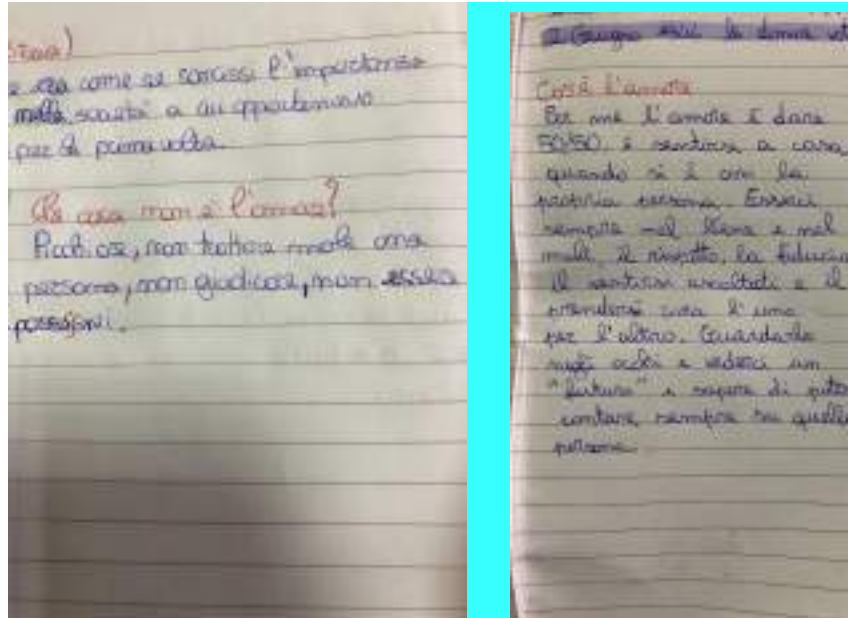 come se l'importanza
a cui
per la prima volta.
Che cosa non è l'amore?
Picchiare, non trattare male una
persona, non giudicare, non essere
2 Giugno la donna
Cos'è l'amore
Per me l'amore è dare
50/50, è sentirsi a casa
quando si è con la
propria persona. Esserci
sempre nel bene e nel
male, il rispetto, la fiducia
il sentirsi ascoltati e il
prendersi cura l'uno
per l'altro. Guardarlo
negli occhi e vederci un
"futuro" e sapere di
contare sempre su quella
persona.